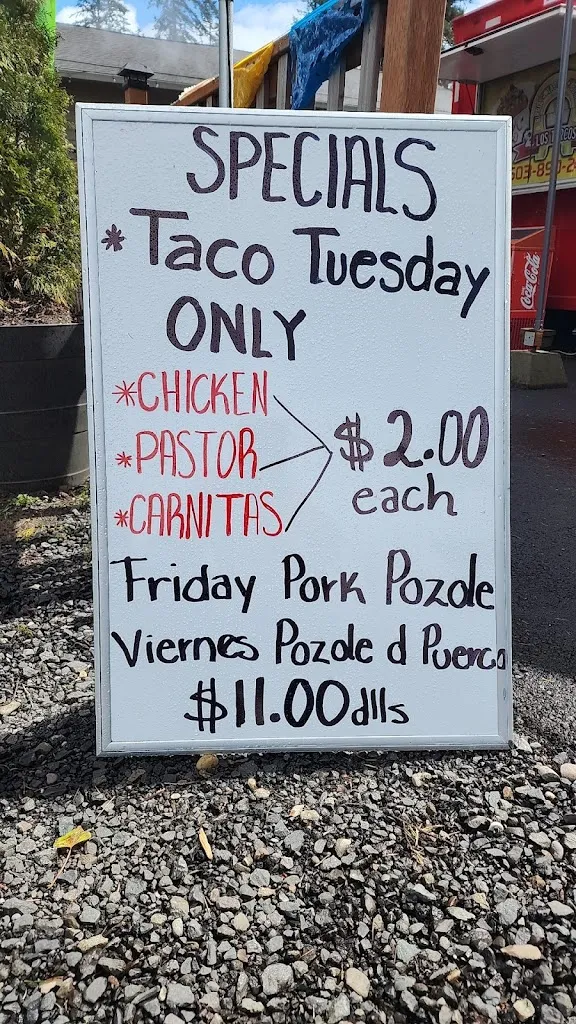 SPECIALS
* Taco Tuesday
ONLY
*CHICKEN
*PASTOR
*CARNITAS
$2.00
each
Friday Pork Pozole
Viernes Pozole d Puerco
$11.00 dlls
Coca-Cola